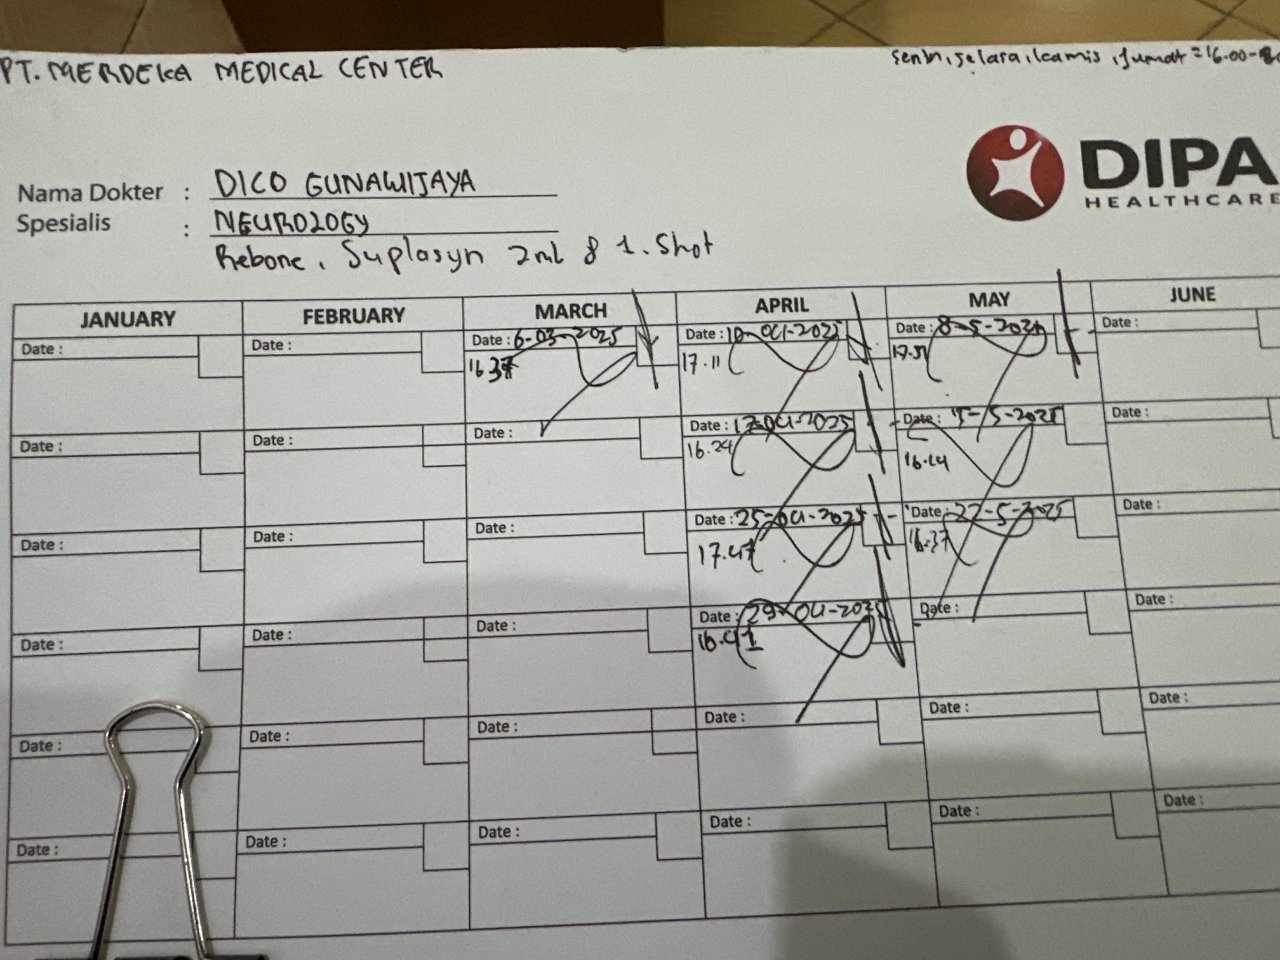 PT. MERDEKA MEDICAL CENTER
Senin, selasa, kamis, Jumat = 16.00-
DIPA
HEALTHCARE
Nama Dokter : DICO GUNAWIJAYA
Spesialis : NEUROLOGY
Rebone, Suplasyn 2ml & 1.Shot
JANUARY FEBRUARY MARCH APRIL MAY JUNE
Date : Date : Date : 6-03-2025 Date : 10-04-2025 Date : 8-5-2025 Date :
16.37 17.11 17.51
Date : Date : Date : Date : 17-04-2025 Date : 15-5-2025 Date :
16.29 16.44
Date : Date : Date : Date : 25-04-2025 Date : 22-5-2025 Date :
17.47 16.37
Date : Date : Date : Date : 29-04-2025 Date : Date :
16.41
Date : Date : Date : Date : Date : Date :
Date : Date : Date : Date : Date : Date :